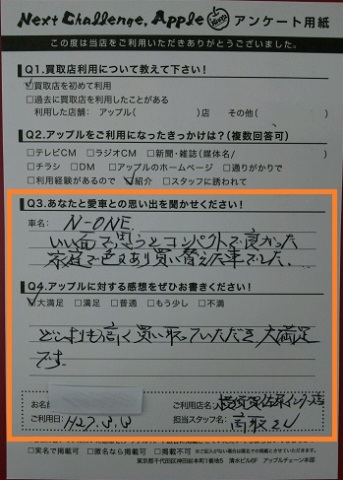 Next Challenge, Apple Next アンケート用紙
この度は当店をご利用いただきありがとうございました。
Q1.買取店利用について教えて下さい！
☑買取店を初めて利用
□過去に買取店を利用したことがある
利用した店舗: アップル( )店 その他( )
Q2.アップルをご利用になったきっかけは？(複数回答可)
□テレビCM □ラジオCM □新聞・雑誌(媒体名/ )
□チラシ □DM □アップルのホームページ □通りがかりで
□利用経験があるので ☑紹介 □スタッフに誘われて
Q3.あなたと愛車との思い出を聞かせてください！
車名: N-ONE
いい面で思うとコンパクトで良かった
家庭で色々あり買い替えた車でした...
Q4.アップルに対する感想をぜひお書きください！
☑大満足 □満足 □普通 □もう少し □不満
どこよりも高く買い取っていただき大満足
です.
お名前 ご利用店名: 横浜インター店
ご利用日: H27.3.3 担当スタッフ名:
□実名で掲載可 □匿名なら掲載可 □掲載不可
東京都千代田区神田松本町1番地5 清水ビル6F アップルチェーン本部